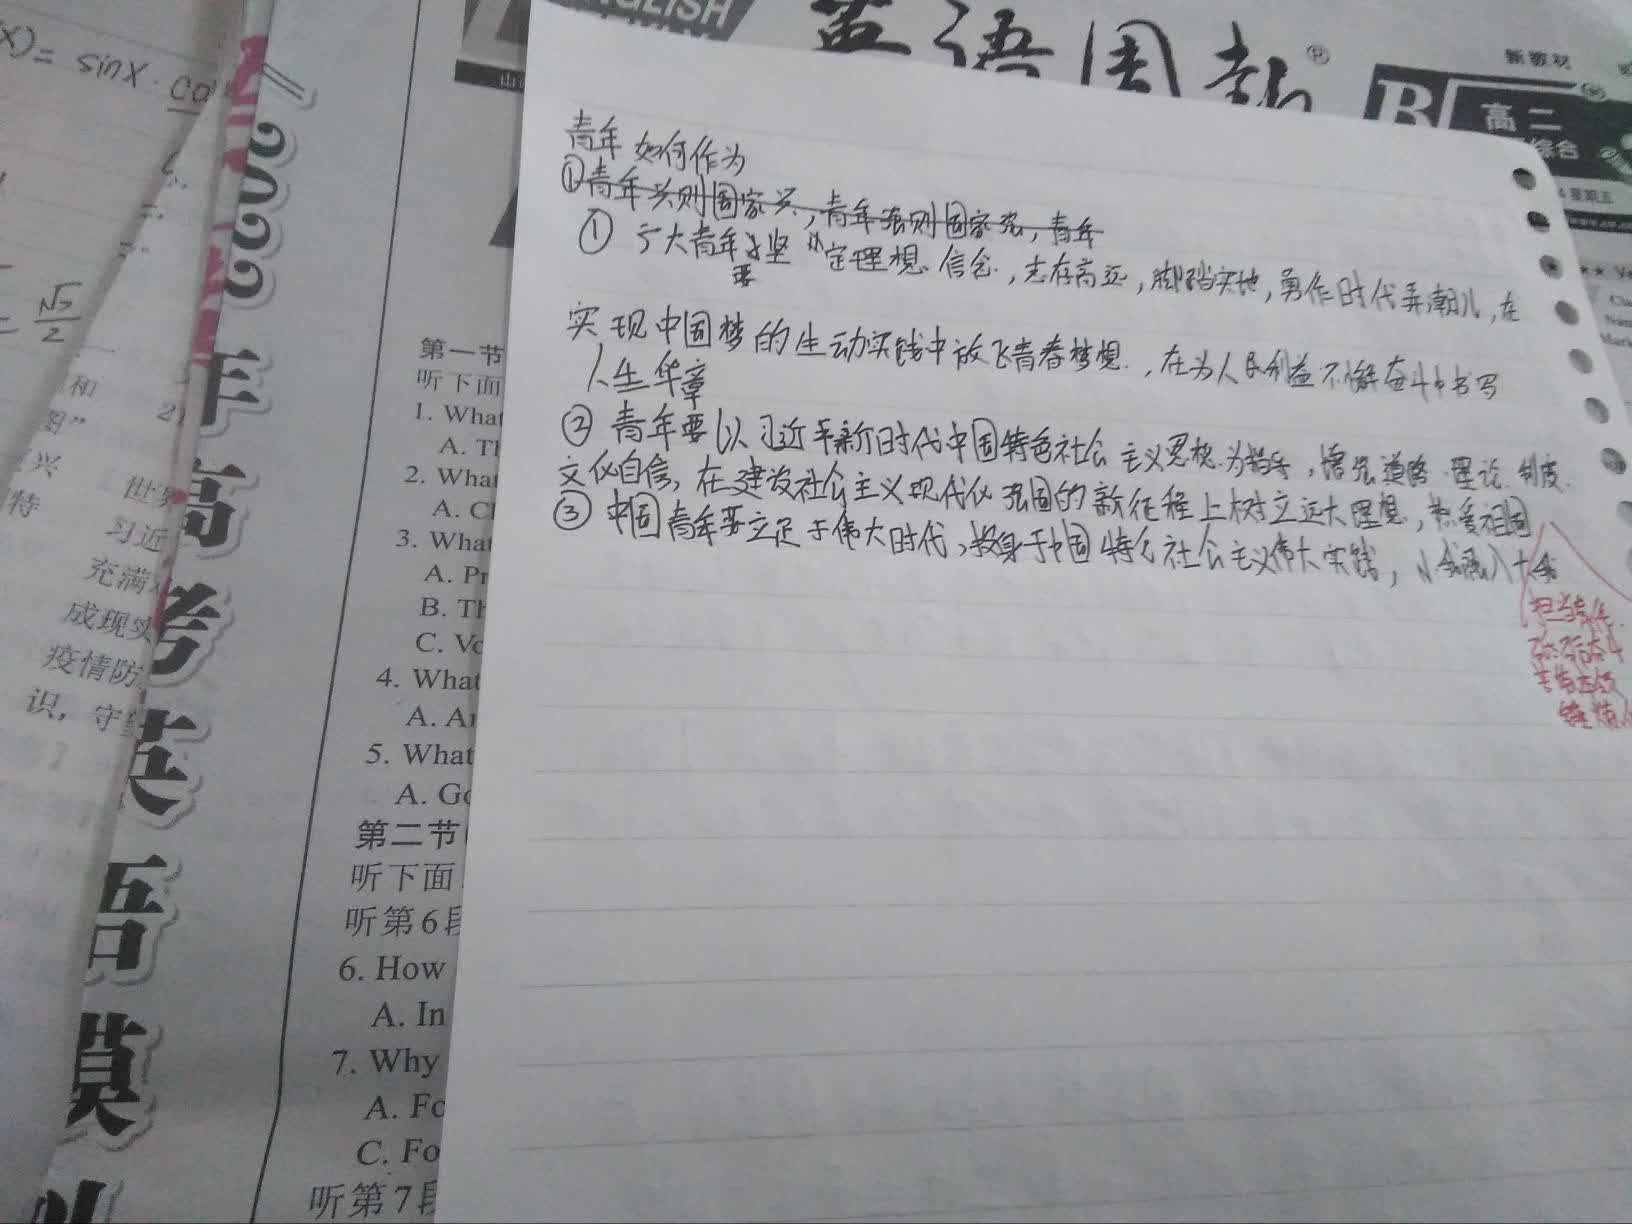 X)= sinX·co
√2
2
和
21
图”
兴
世界
特
习近
充满
成现实
疫情防
识,守
2023年高考英语模
ENGLISH
英语周报®
新教材
B
高二
综合
星期五
山
第一节
听下面
1. What
A. Th
2. What
A. Cl
3. What
A. Pr
B. Th
C. Vo
4. What
A. Ar
5. What
A. Go
第二节
听下面
听第6段
6. How
A. In
7. Why
A. Fo
C. Fo
听第7段
青年 如何作为
①青年兴则国家兴,青年强则国家强,青年
① 广大青年要坚定理想信念,志存高远,脚踏实地,勇作时代弄潮儿,在
实现中国梦的生动实践中放飞青春梦想,在为人民利益不懈奋斗中书写
人生华章
② 青年要以习近平新时代中国特色社会主义思想为指导,增强道路 理论 制度
文化自信,在建设社会主义现代化强国的新征程上树立远大理想,热爱祖国
③ 中国青年要立足于伟大时代,投身于中国特色社会主义伟大实践,小我融入大我
担当责任
锤炼